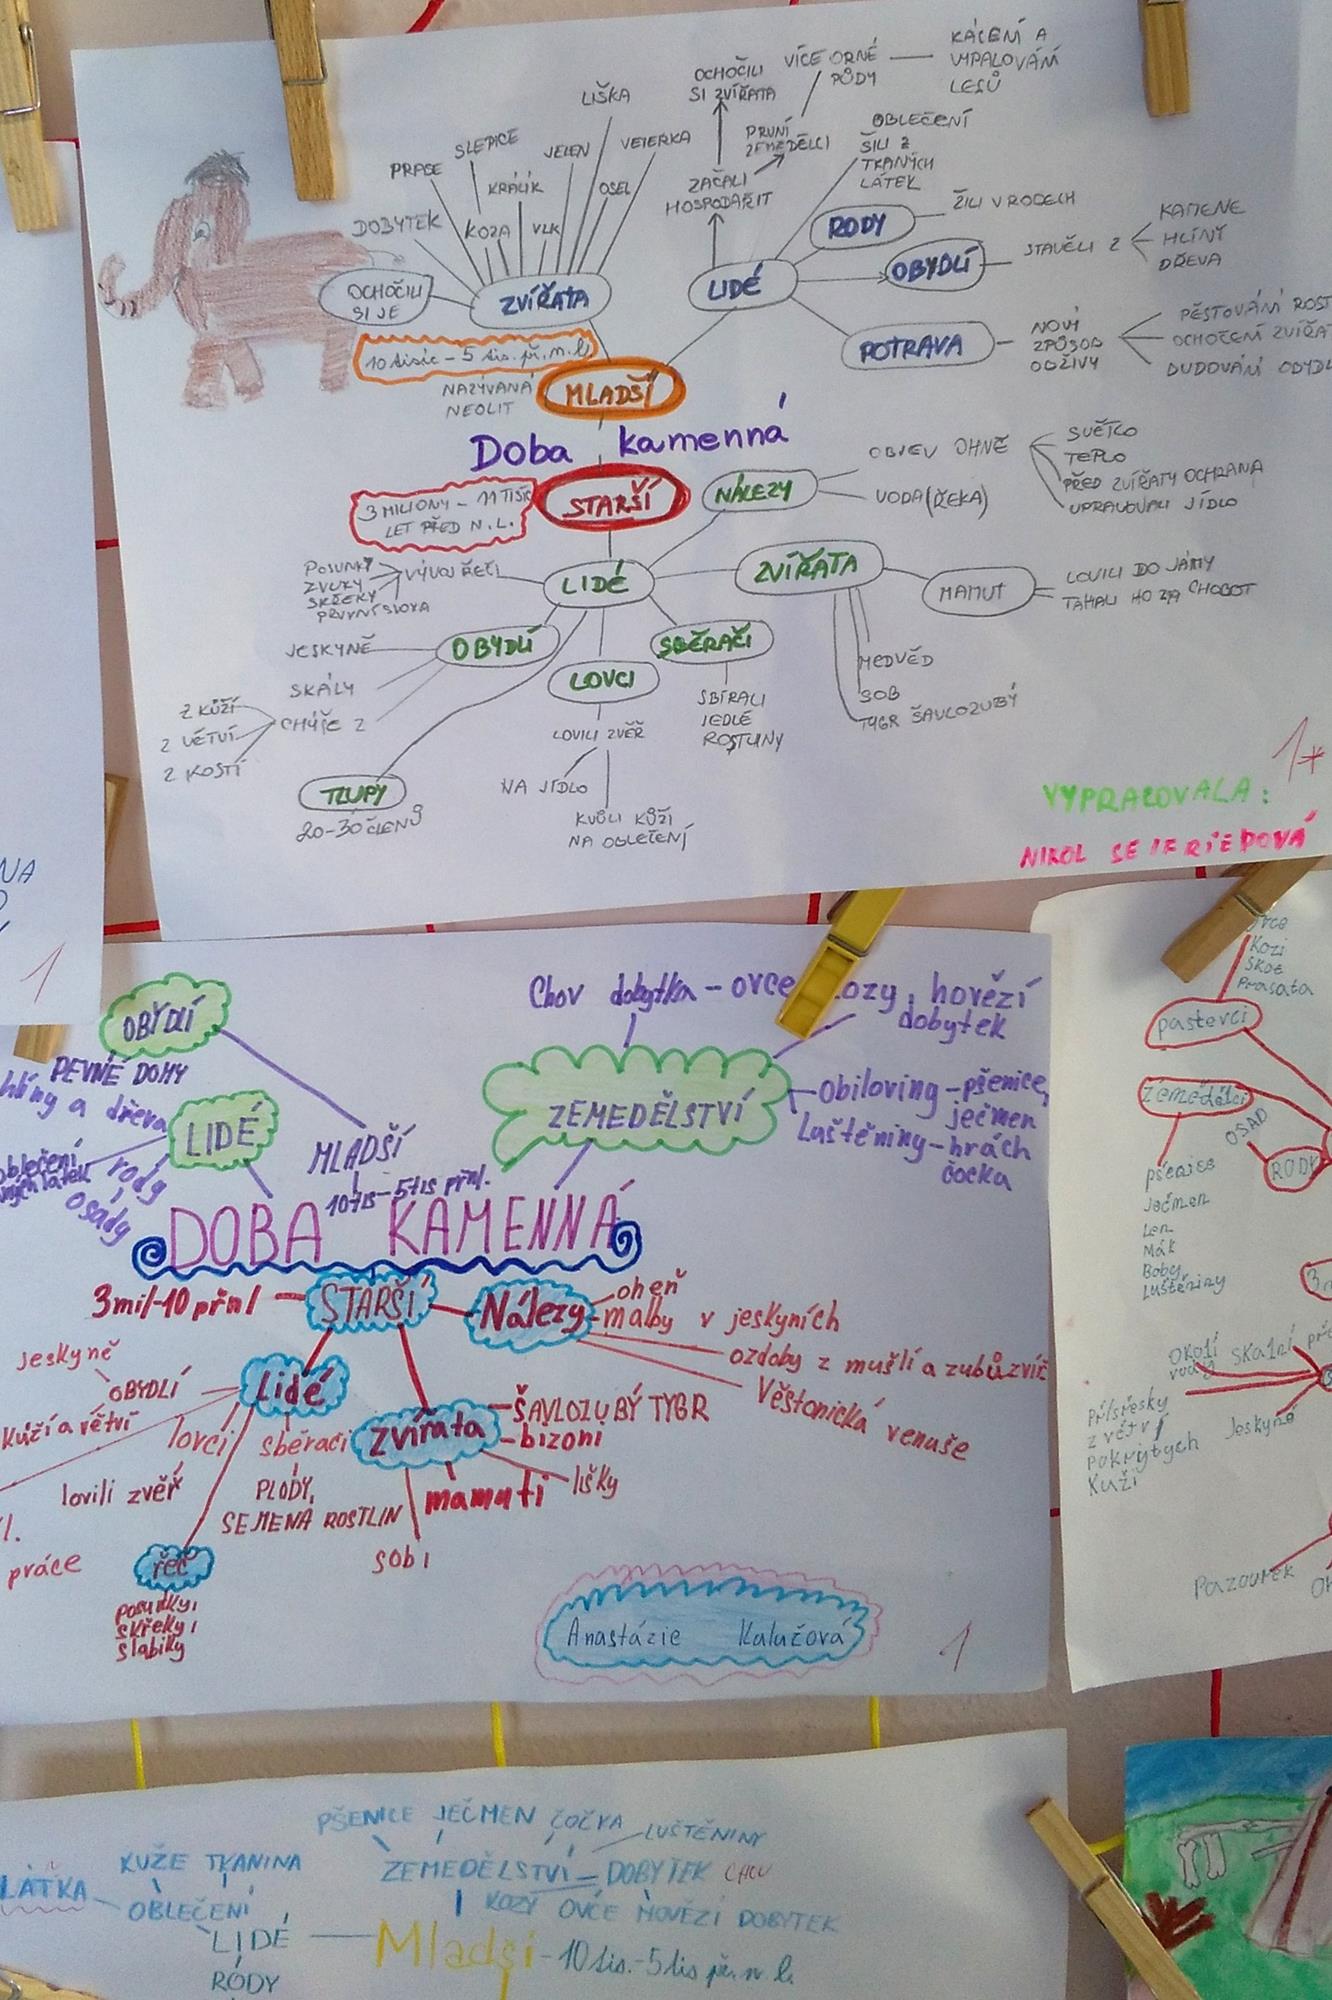 KÁCENÍ A
VYPALOVÁNÍ
LESŮ
VÍCE ORNÉ
PŮDY
OCHOČILI
SI ZVÍŘATA
PRVNÍ
ZEMĚDĚLCI
ZAČALI
HOSPODAŘIT
OBLEČENÍ
ŠILI Z
TKANÝCH
LÁTEK
LIŠKA
VEVERKA
JELEN
OSEL
SLEPICE
KRÁLÍK
VLK
PRASE
KOZA
DOBYTEK
OCHOČILI
SI JE
ZVÍŘATA
LIDÉ
RODY
ŽILI V RODECH
OBYDLÍ
STAVĚLI Z
KAMENE
HLÍNY
DŘEVA
POTRAVA
NOVÝ
ZPŮSOB
OBŽIVY
PĚSTOVÁNÍ ROST
OCHOČENÍ ZVÍŘAT
BUDOVÁNÍ OBYDL
10 tisíc - 5 tis. př. n. l.
NAZÝVANÁ
NEOLIT
MLADŠÍ
Doba kamenná
STARŠÍ
3 MILIONY - 11 TISÍC
LET PŘED N. L.
NÁLEZY
OBJEV OHNĚ
SVĚTLO
TEPLO
PŘED ZVÍŘATY OCHRANA
UPRAVOVALI JÍDLO
VODA (ŘEKA)
LIDÉ
VÝVOJ ŘEČI
POSUNKY
ZVUKY
SKŘEKY
PRVNÍ SLOVA
ZVÍŘATA
MAMUT
LOVILI DO JÁMY
TAHALI HO ZA CHOBOT
MEDVĚD
SOB
TYGR ŠAVLOZUBÝ
OBYDLÍ
JESKYNĚ
SKÁLY
CHÝŠE Z
Z KŮŽÍ
Z VĚTVÍ
Z KOSTÍ
LOVCI
LOVILI ZVĚŘ
NA JÍDLO
KVŮLI KŮŽI
NA OBLEČENÍ
SBĚRAČI
SBÍRALI
JEDLÉ
ROSTLINY
TLUPY
20-30 ČLENŮ
1*
VYPRACOVALA:
NIKOL SEIFRIEDOVÁ
NA
1
OBYDLÍ
PEVNÉ DOMY
hlíny a dřeva
LIDÉ
oblečení
rody
osady
MLADŠÍ
10tis-5tis přnl.
ZEMEDĚLSTVÍ
Chov dobytka - ovce ozy, hovězí
dobytek
Obiloviny - pšenice,
ječmen
Luštěniny - hrách
čočka
DOBA KAMENNÁ
STARŠÍ
3mil-10 přnl
Nálezy
oheň
malby v jeskyních
ozdoby z mušlí a zubů zvíř
Věstonická venuše
Lidé
Jeskyně
OBYDLÍ
Kůží a větví
lovci
lovili zvěř
sběraci
PLODY,
SEMENA ROSTLIN
zvířata
ŠAVLOZUBÝ TYGR
bizoni
lišky
mamuti
sobi
řeč
posunky,
skřeky,
slabiky
l.
práce
Anastázie Kalužová
1
ovce
Kozi
Skot
Prasata
pastevci
zemědělci
OSAD
RODY
pšenice
Ječmen
Len
Mák
Boby
Luštěniny
3
Okolí
vody
skalní
Přístřešky
z větví
pokrytých
Kuží
Jeskyně
Pazourek
PŠENICE JEČMEN ČOČKA
LUŠTĚNINY
KUŽE TKANINA
ZEMEDĚLSTVÍ - DOBYTEK CHOV
LÁTKA
OBLEČENÍ
KOZY OVCE HOVĚZÍ DOBYTEK
LIDÉ
Mladší - 10 tis. - 5 tis př. n l.
RODY